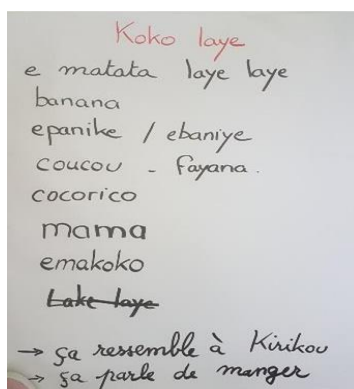 Koko laye
e matata laye laye
banana
epanike / ebaniye
coucou - fayana.
cocorico
mama
emakoko
Lake laye
→ ça ressemble à Kirikou
→ ça parle de manger